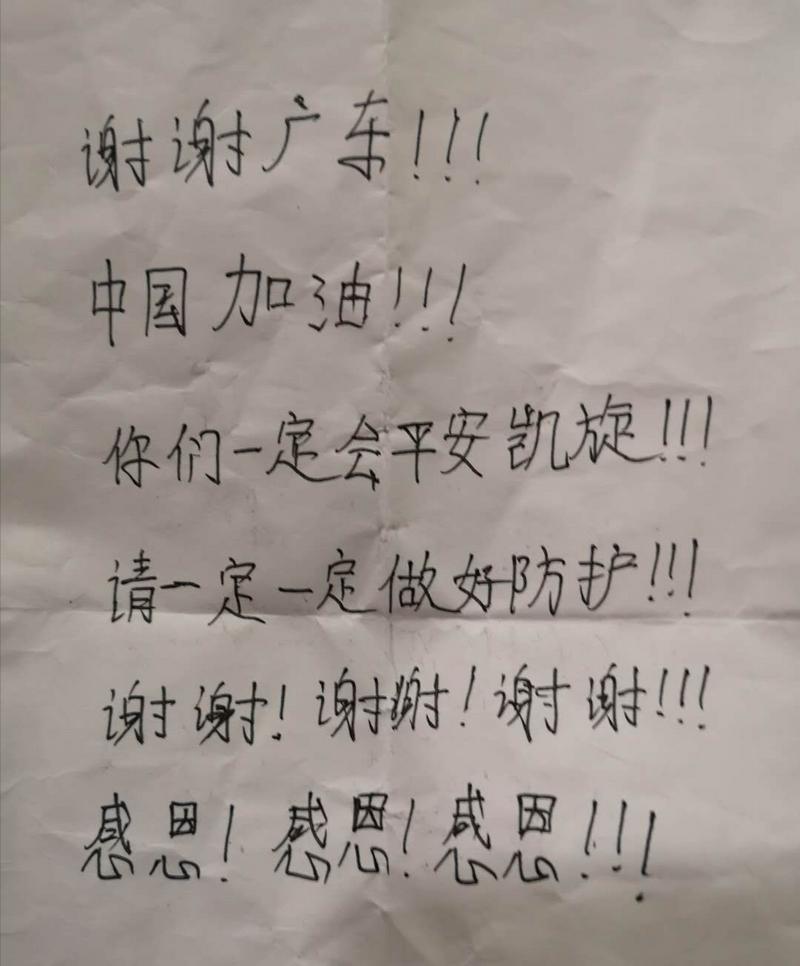 谢谢广东!!!
中国加油!!!
你们一定会平安凯旋!!!
请一定一定做好防护!!!
谢谢!谢谢!谢谢!!!
感恩!感恩!感恩!!!